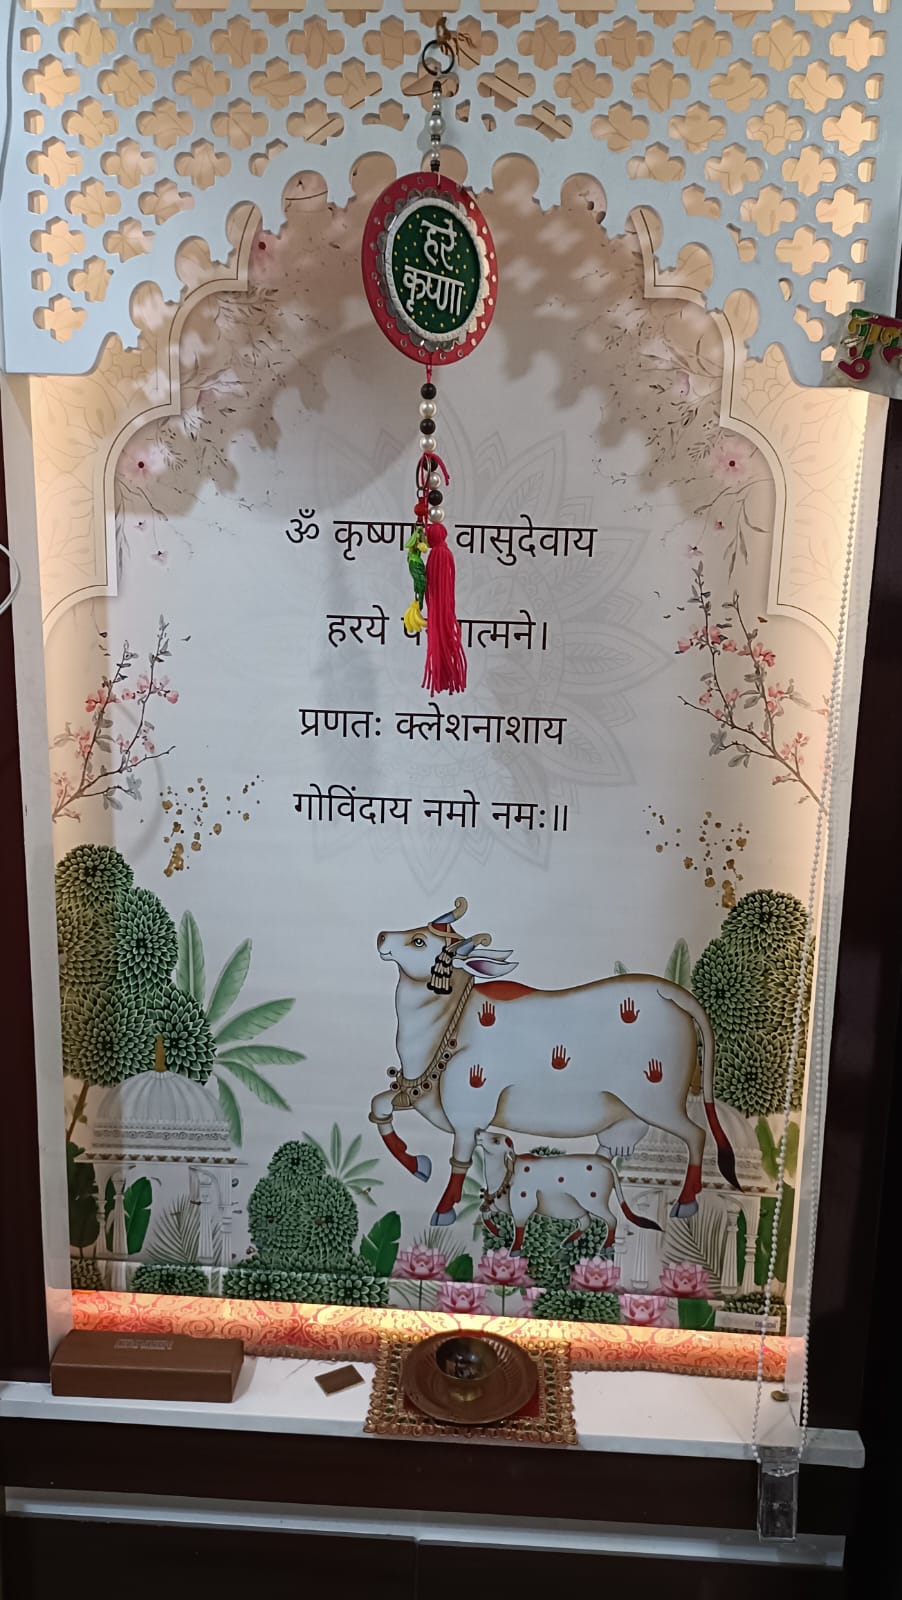 हरे
कृष्णा
ॐ वासुदेवाय
हरये
प्रणतः क्लेशनाशाय
गोविंदाय नमो नमः॥